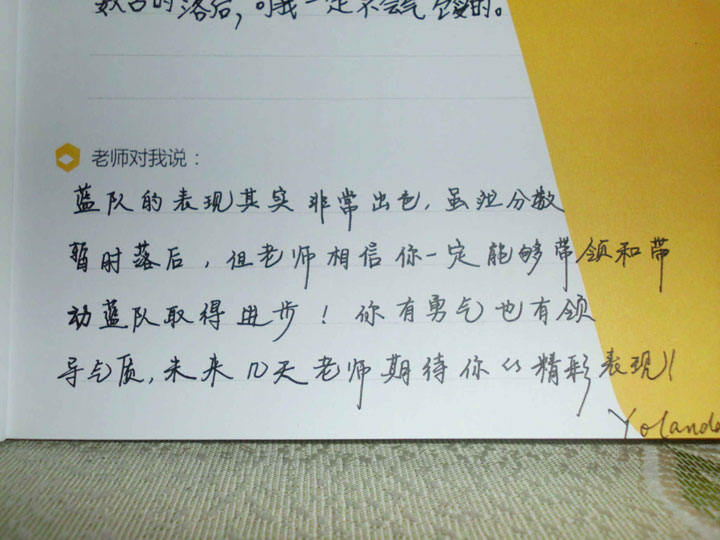 数名的落后，可我一定不会气馁的。
老师对我说：
蓝队的表现其实非常出色，虽然分数
暂时落后，但老师相信你一定能够带领和带
动蓝队取得进步！你有勇气也有领
导气质，未来几天老师期待你的精彩表现！
Yolanda